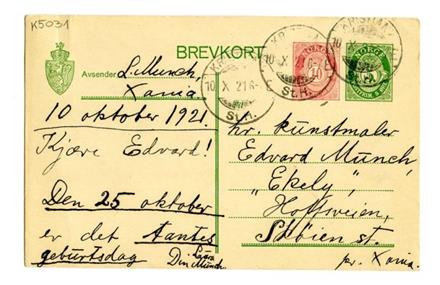 K5031
BREVKORT
Avsender
L. Munch,
Xania.
10 X 21 6-E
St. H.
10 oktober 1921.
Kjære Edvard!
Den 25 oktober
er det Tantes
geburtsdag
Din Laura
Munch.
hr. kunstmaler
Edvard Munch,
"Ekely"
Hoffsveien,
Skøien st.
pr. Xania.